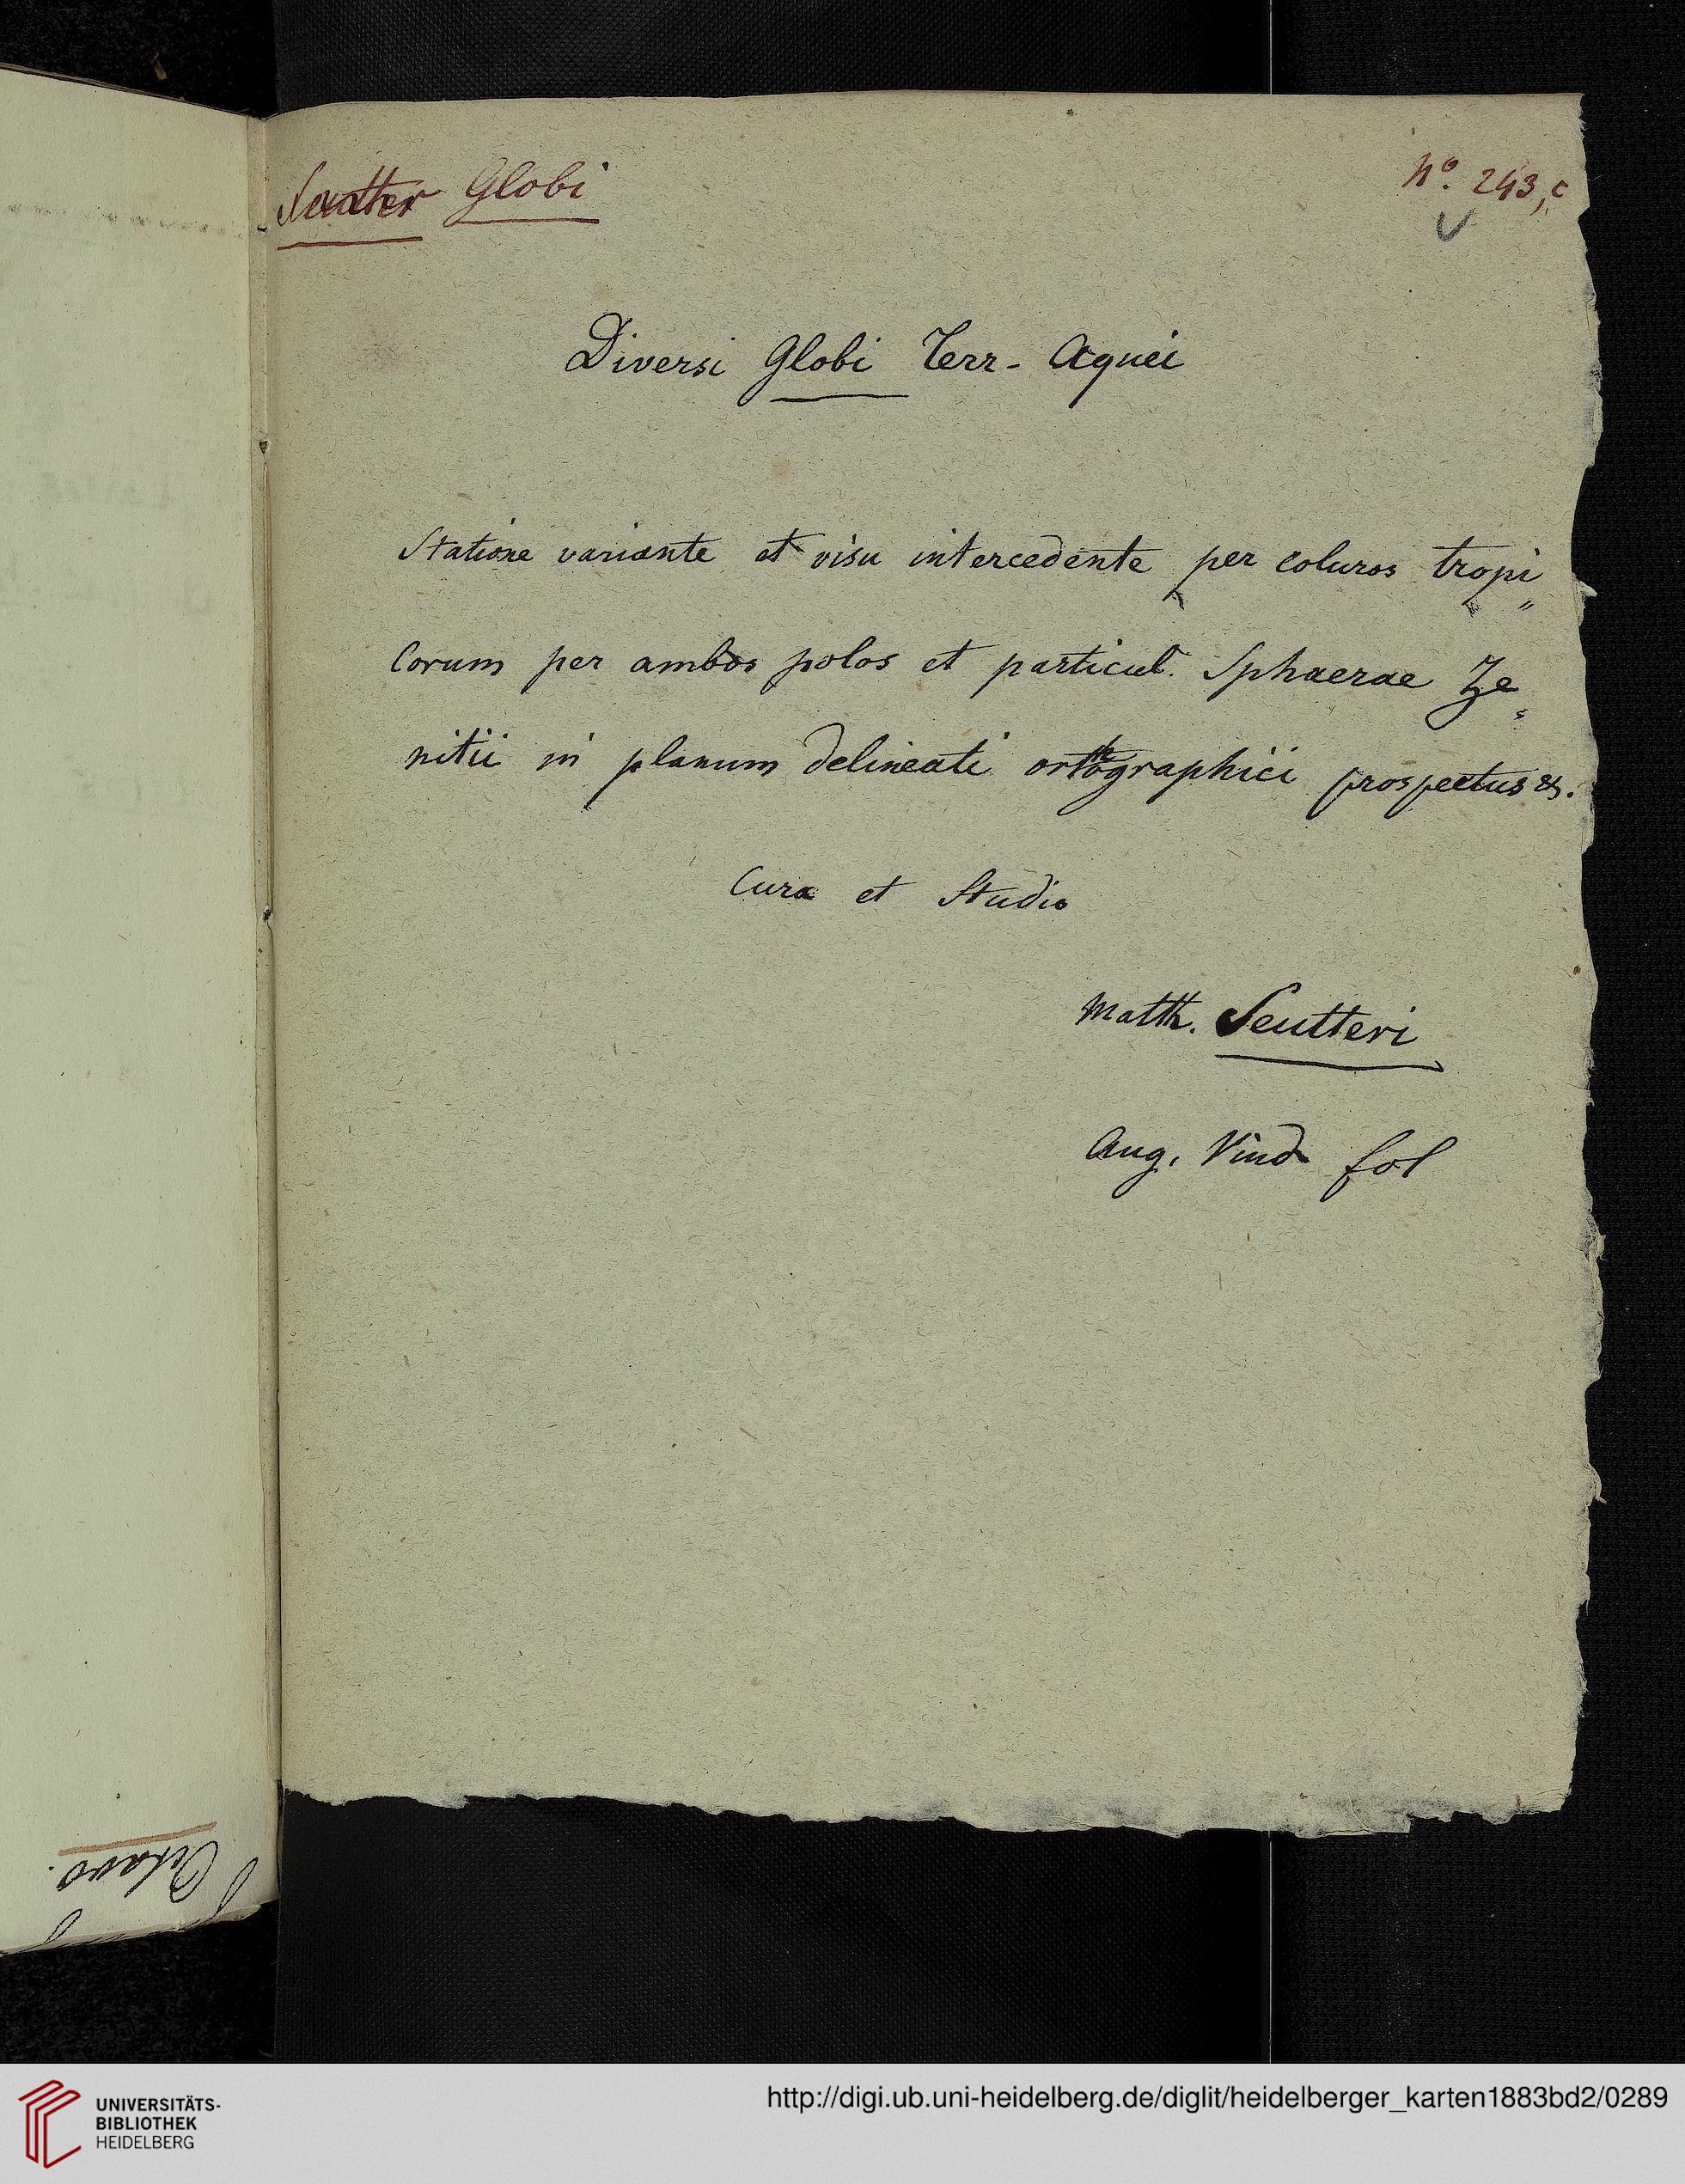 Seutter Globi
No. 243, c
Diversi Globi Terr- Aquei
Statione variante et visu intercedente per coluros tropi„
corum per ambos polos et particul. Sphaerae Ze⸗
nitii in planum delineati orthographici prospectus &.
Cura et Studio
Matth. Seutteri
Aug. Vind fol
Octavo.
UNIVERSITÄTS-
BIBLIOTHEK
HEIDELBERG
http://digi.ub.uni-heidelberg.de/diglit/heidelberger_karten1883bd2/0289